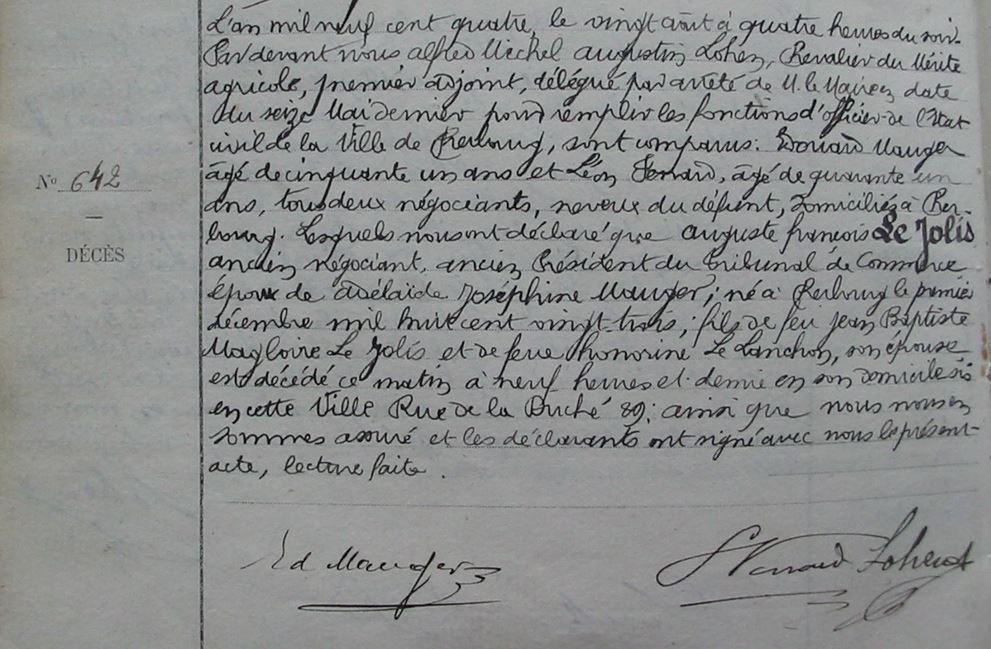 L'an mil neuf cent quatre, le vingt août à quatre heures du soir.
Par devant nous alfred Michel augustin Lohen, Chevalier du Mérite
agricole, premier adjoint, délégué par arrêté de M. le Maire en date
du seize Mai dernier pour remplir les fonctions d'officier de l'Etat
civil de la Ville de Cherbourg, sont comparus: Edouard Mauger
âgé de cinquante un ans et Léon Renard, âgé de quarante un
Nº 642
ans, tous deux négociants, neveux du défunt, domiciliés à Cher-
bourg. Lesquels nous ont déclaré que auguste françois Le Jolis
DÉCÈS
ancien négociant, ancien Président du Tribunal de Commerce
époux de adélaïde Joséphine Mauger; né à Cherbourg le premier
décembre mil huit cent vingt-trois; fils de feu Jean Baptiste
Magloire Le Jolis et de feue honorine Le Lanchon, son épouse
est décédé ce matin à neuf heures et demie en son domicile sis
en cette Ville Rue de la Duché 29: ainsi que nous nous en
sommes assuré et les déclarants ont signé avec nous le présent
acte, lecture faite.
Ed Mauger